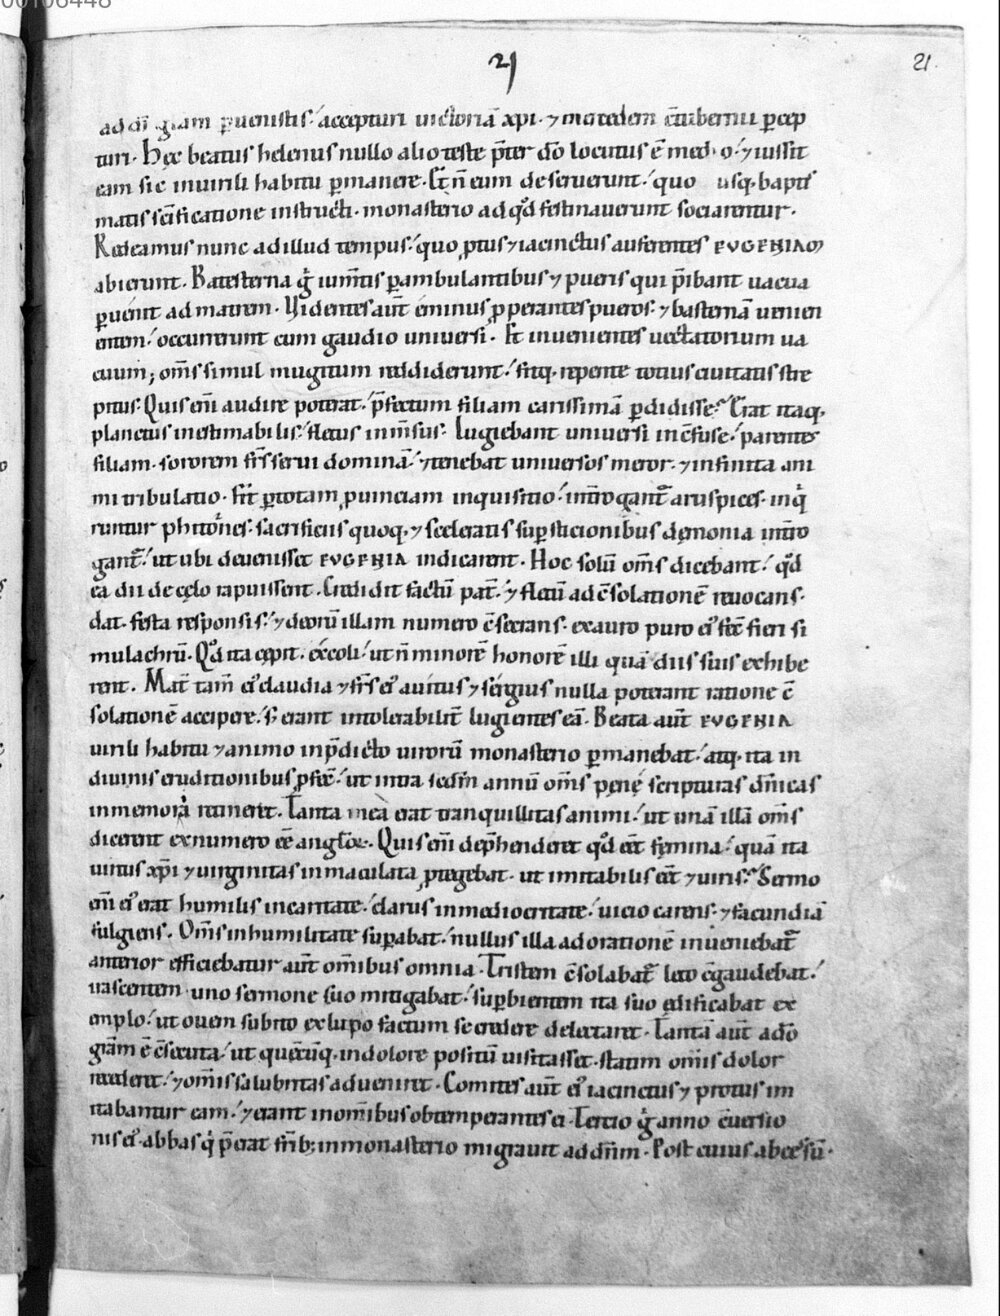 00106448
21
21
ad dī gr̄am ꝑuenistis. accepturi uictoriā xp̄i. ⁊ mercedem cū ꝑcep
turi. Hęc beatus helenus nullo alio teste p̄ter dō locutus ē ⁊ iussit
eam sic in uirili habitu ꝑmanere. & n̄ eum deseruerunt. quo usq; baptis
matis sc̄ificatione instructi. monasterio ad qd̄ festinauerunt sociarentur.
Redeamus nunc ad illud tempus. quo ꝓtus ⁊ iacinctus auferentes EVGENIAM
abierunt. Basterna gͥ iumtis ꝑambulantibus ⁊ pueris qui p̄ibant uacua
ꝑuenit ad matrem. Videntes aut̄ eminus ꝓperantes pueros. ⁊ basternā uenien
entem. occurrerunt cum gaudio uniuersi. Et inuenientes uectatorium ua
cuum; om̄s simul mugitum reddiderunt. fitq; repente totius ciuitatis stre
pitus. Quis eni audire poterat. p̄fectum filiam carissimā ꝑdidisse. Erat itaq;
planctus inestimabilis. fletus inm̄sus. Lugebant uniuersi inc̄fuse. parentes
filiam. sororem fr̄s serui dominā. ⁊ tenebat uniuersos meror. ⁊ infinita ani
mi tribulatio. fit ꝑ totam ꝓuinciam inquisitio. int̄rogant̄ aruspices. inqͥ
runtur phitones. sacrificiis quoq; ⁊ sceleratis suꝑsticionibus demonia int̄ro
gant̄. ut ubi deuenisset EVGENIA indicarent. Hoc solū om̄s dicebant. qd̄
ea dii de cęlo rapuissent. Credidit factū pat̄. ⁊ fletū ad c̄solationē reuocans.
dat festa responsis. ⁊ deorū illam numero c̄secrans. ex auro puro eꝰ fec̄ fieri si
mulachrū. Qd̄ ita cępit excoli. ut n̄ minorē honorē illi quā diis suis exhibe
rent. Mat̄ tam̄ eꝰ claudia ⁊ fr̄s eꝰ auitus ⁊ sergius nulla poterant ratione c̄
solationē accipere. s; erant intolerabilit̄ lugientes eā. Beata aut̄ EVGENIA
uirili habitu ⁊ animo in p̄dicto uirorū monasterio ꝑmanebat. atq; ita in
diuinis eruditionibus ꝓfec̄. ut intra sedm̄ annū om̄s penę scripturas dn̄icas
in memoria retineret. Tanta in ea erat tranquillitas animi. ut unā illā om̄s
dicerent ex numero ēe anglōꝝ. Quis eni dep̄henderet qd̄ eēt femina. quā ita
uirtus xp̄i ⁊ uirginitas inmaculata ꝓtegebat. ut imitabilis eēt ⁊ uiris. Sermo
eni eꝰ erat humilis in caritate. clarus in mediocritate. uicio carens. ⁊ facundiā
fulgens. Om̄s in humilitate suꝑabat. nullus illa ad orationē inueniebat̄
anterior efficiebatur aut̄ omibus omnia. Tristem c̄solabat̄ leto c̄gaudebat.
irascentem uno sermone suo mitigabat. suꝑbientem ita suo ędificabat ex
emplo. ut ouem subito ex lupo factum se credere delectaret. Tantā aut̄ a dō
gr̄am ē c̄secuta. ut quēcūq; in dolore positū uisitasset. statim om̄is dolor
recederet. ⁊ om̄is salubritas adueniret. Comites aut̄ eꝰ iacinctus ⁊ protus im
itabantur eam. ⁊ erant in omibus obtemperantes ei. Tercio gͥ anno c̄uersio
nis eꝰ. abbas qͥ p̄erat fr̄ib; in monasterio migrauit ad dn̄m. Post cuius abcessū.